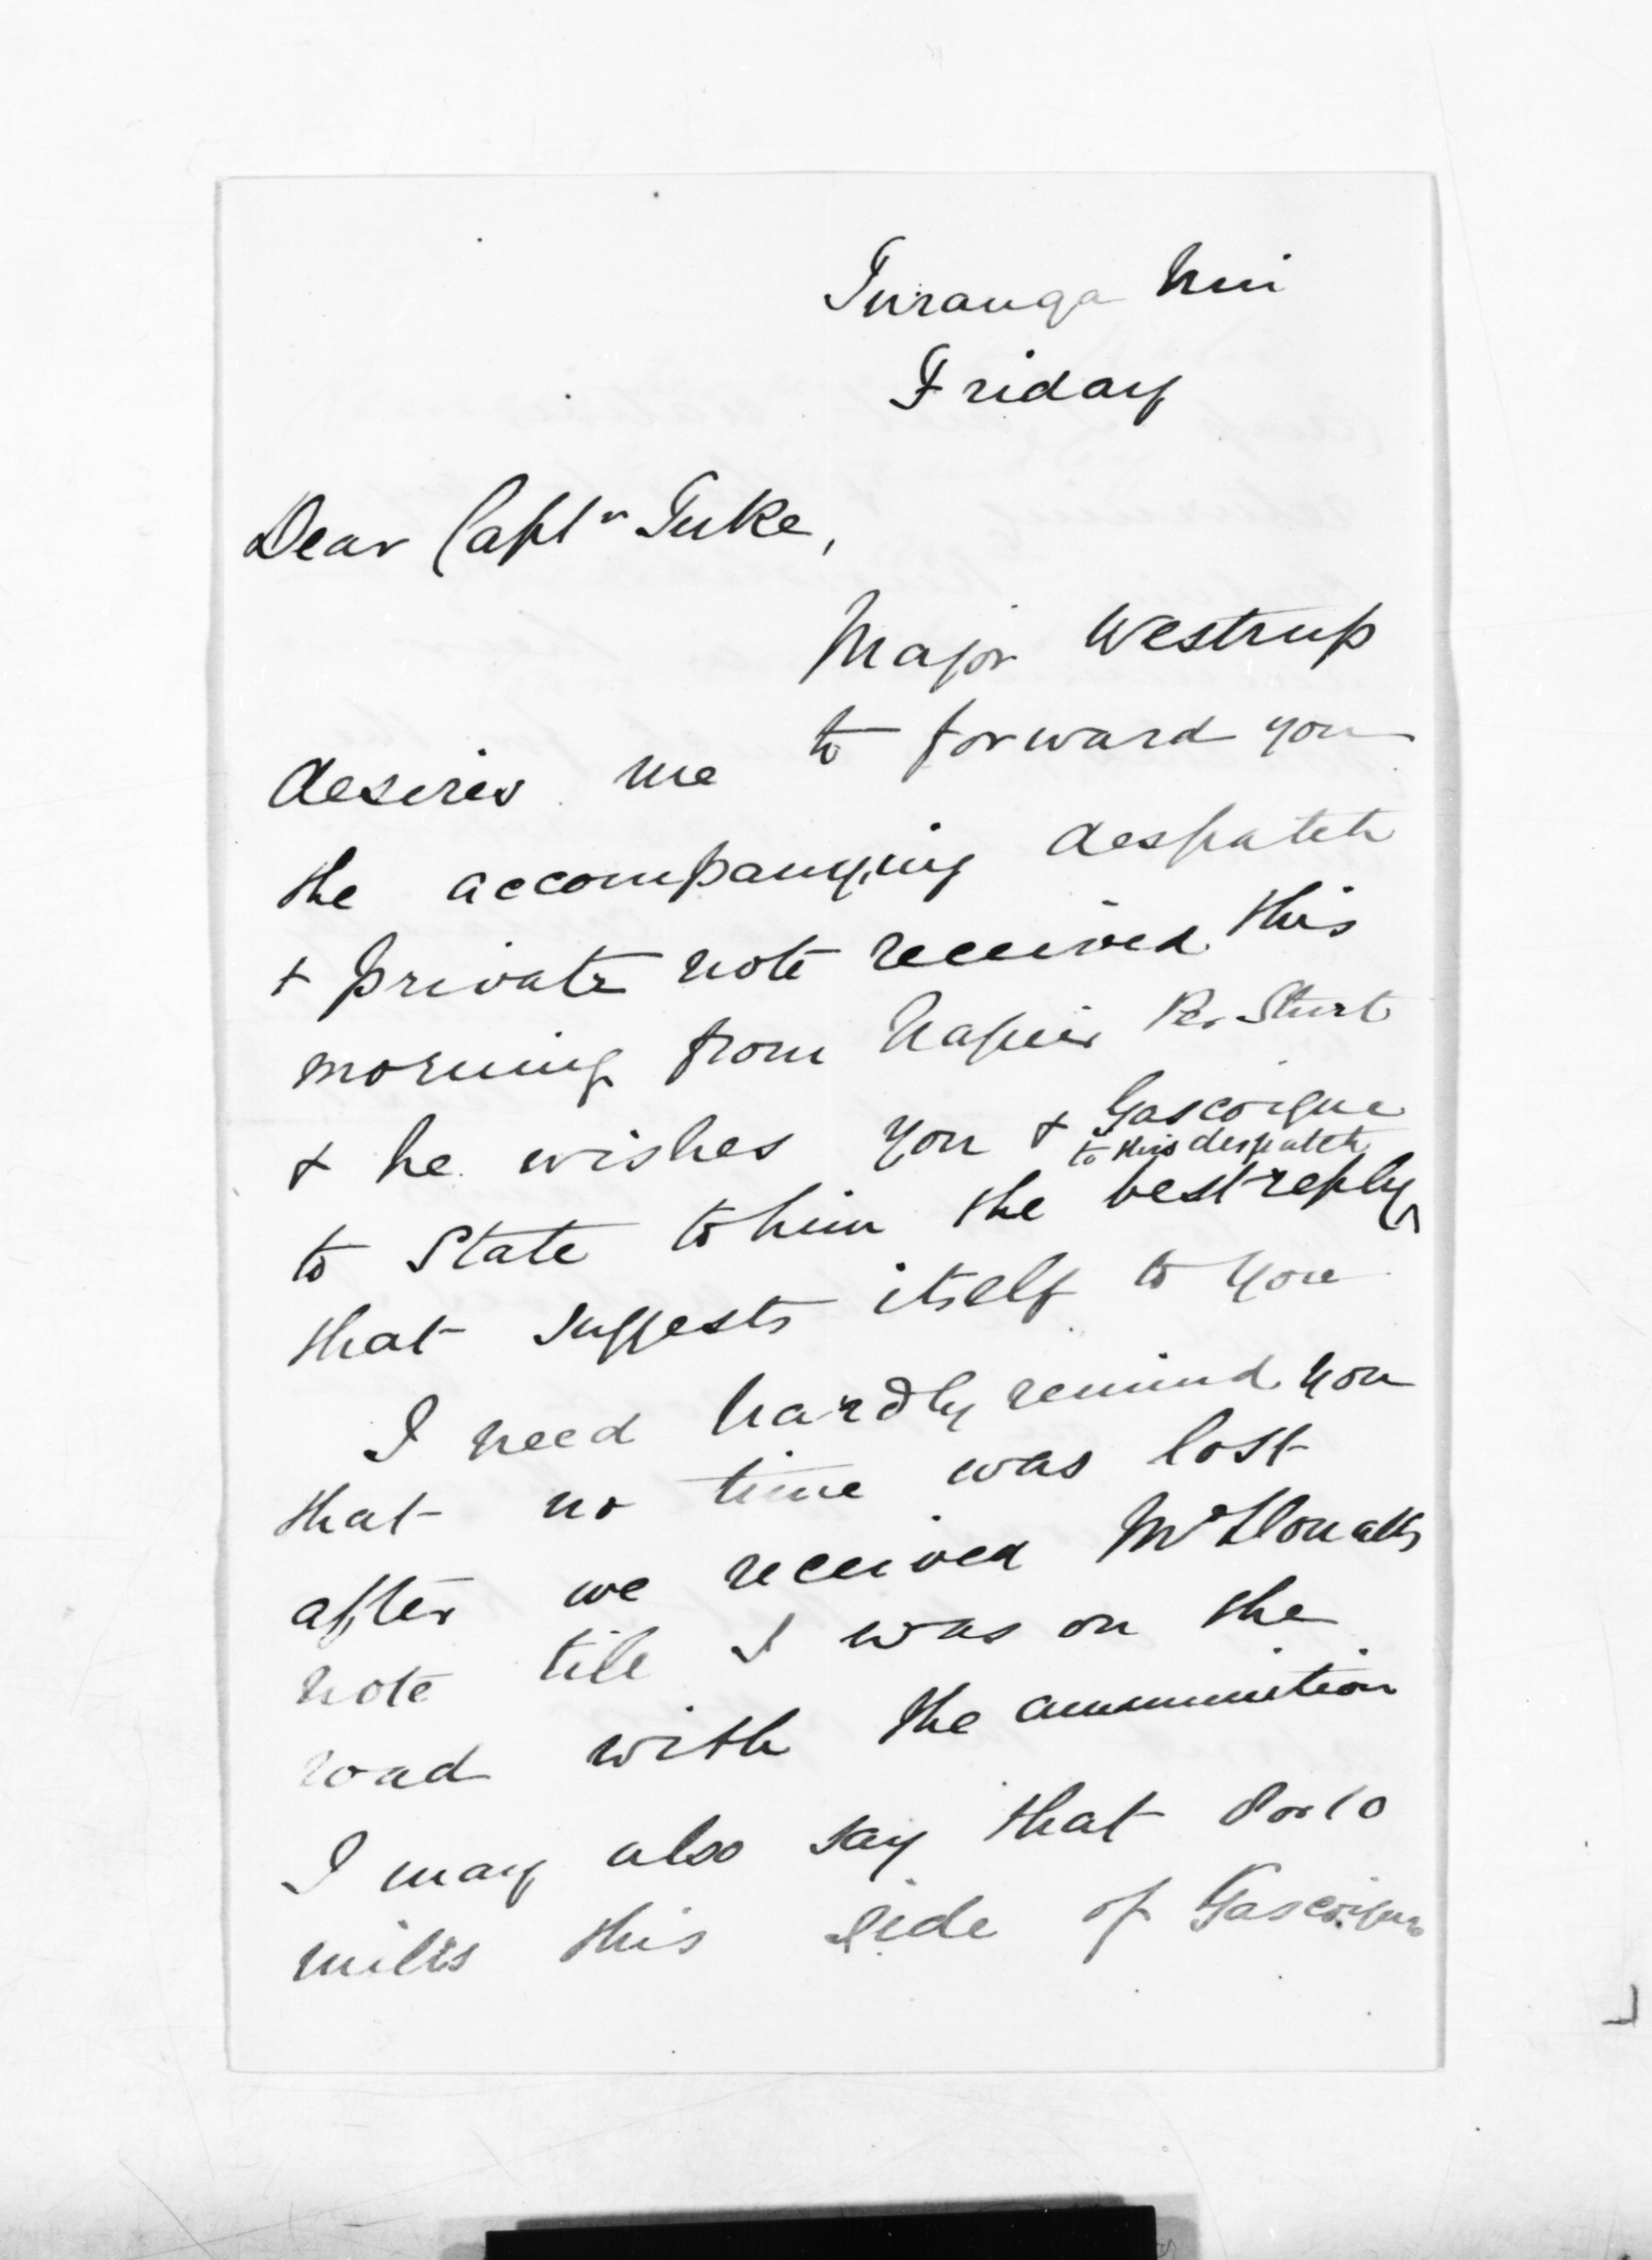 Turanga Nui
Friday
Dear Captn Tuke,
Major Westrup
desires me to forward you
the accompanying despatch
+ private note received this
morning from Napier Per Sturt
+ he wishes you + Gascoigne
to this despatch
to State to him the best reply
that suggests itself to you
I need hardly remind you
that no time was lost
after we received McDonalds
note till I was on the
road with the ammunition
I may also say that 8 or 10
miles this side of Gascoigne